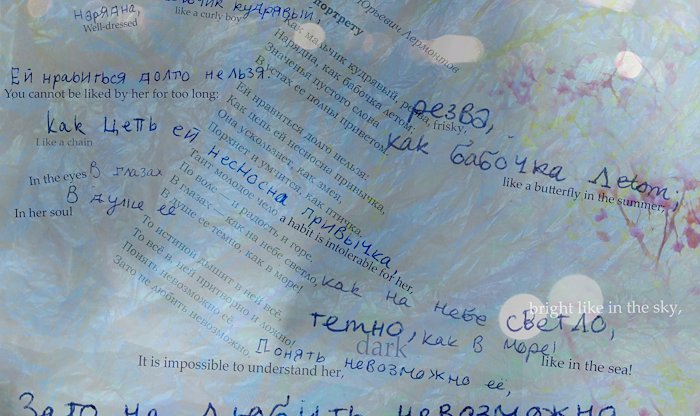 мальчик кудрявый,
like a curly boy
нарядна,
Well-dressed
портрету
Юрьевич Лермонтов
Как мальчик кудрявый, резва,
Нарядна, как бабочка летом;
Значенья пустого слова
В устах ее полны приветом.
Ей нравиться долго нельзя:
Как цепь ей несносна привычка,
Она ускользнет, как змея,
Порхнет и умчится, как птичка.
Таит молодое чело
По воле — и радость и горе.
В глазах — как на небе светло,
В душе ее темно, как в море!
То истиной дышит в ней всё,
То всё в ней притворно и ложно!
Понять невозможно ее,
Зато не любить невозможно.
резва,
frisky,
Ей нравиться долго нельзя:
You cannot be liked by her for too long:
как бабочка летом;
like a butterfly in the summer;
как цепь ей несносна привычка,
Like a chain
a habit is intolerable for her,
In the eyes
в глазах
как на небе светло,
bright like in the sky,
в душе ее
In her soul
темно, как в море!
dark
like in the sea!
Понять невозможно её,
It is impossible to understand her,
Зато не любить невозможно